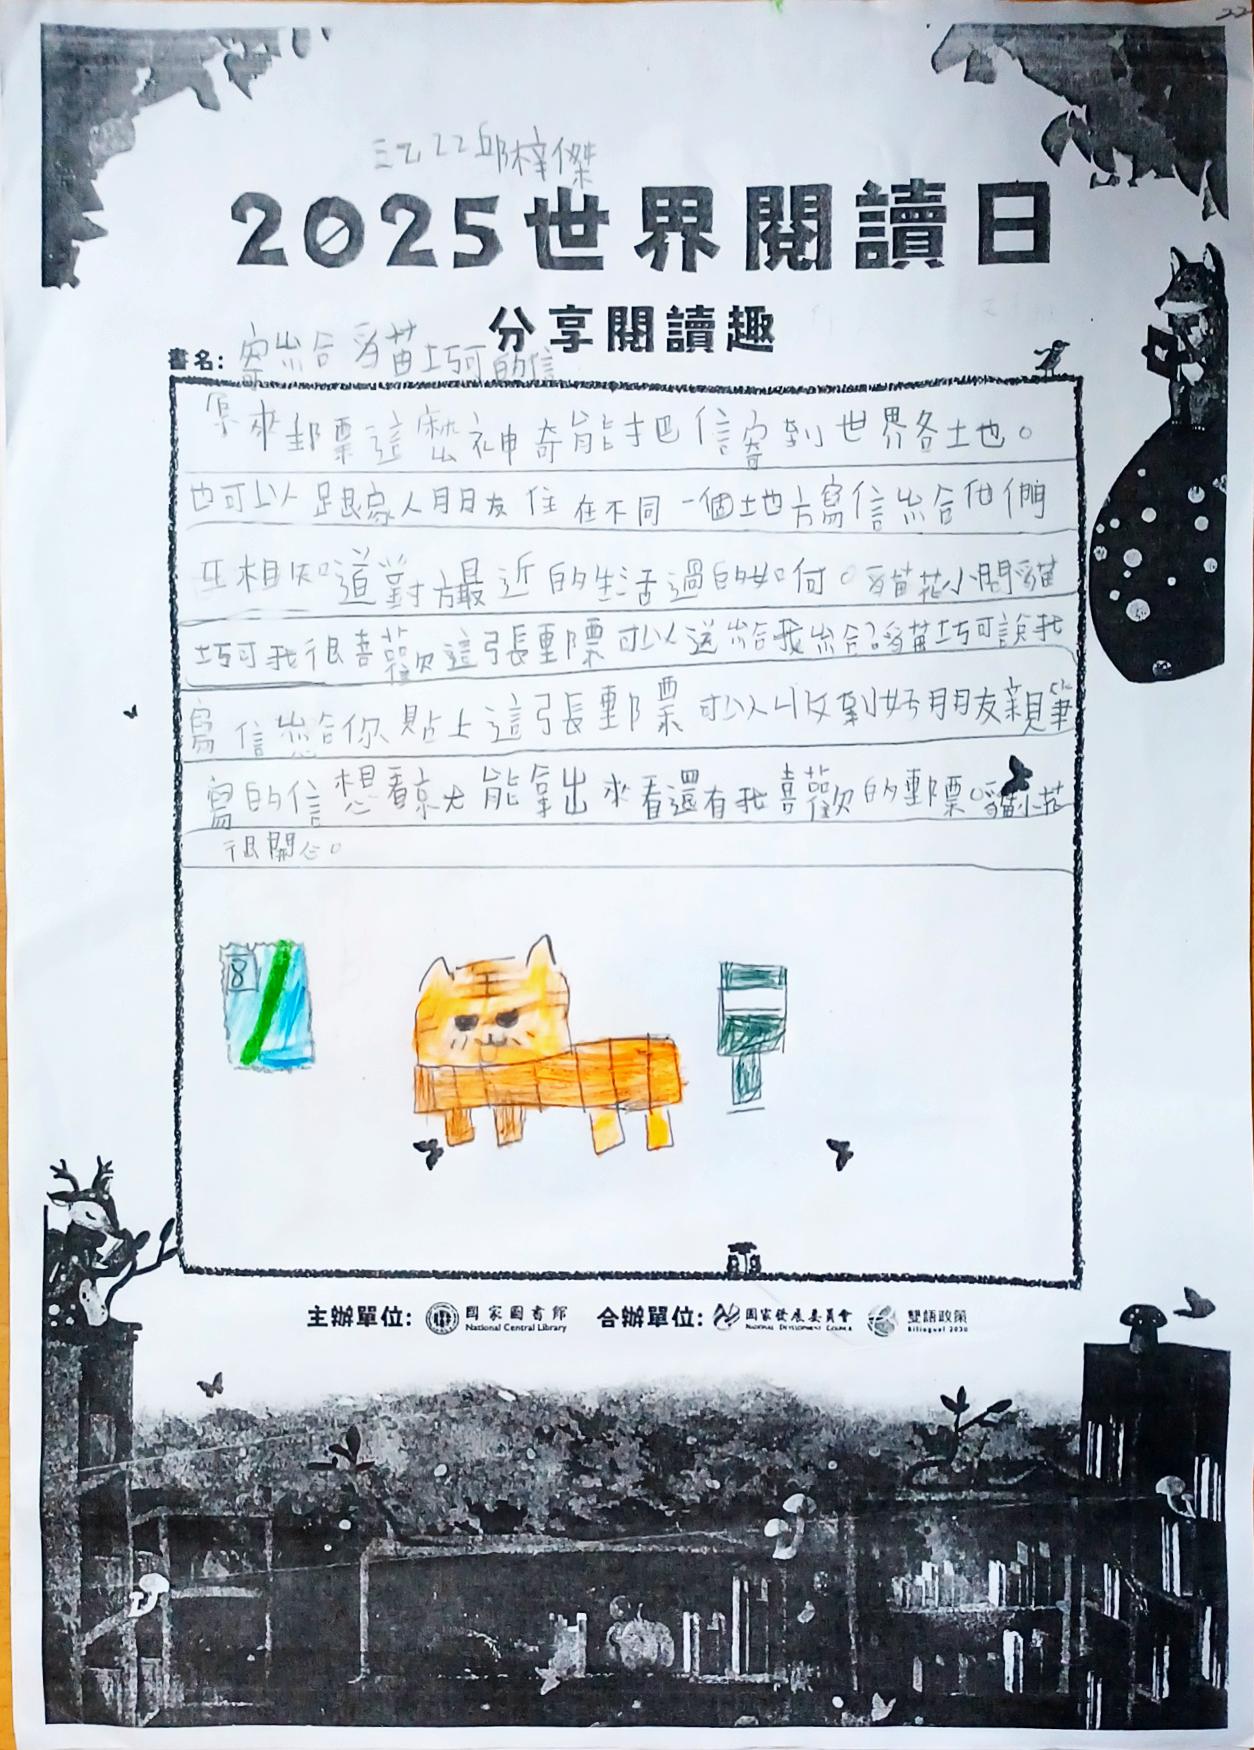 22
三乙22邱梓傑
2025世界閱讀日
分享閱讀趣
書名: 寄給貓巧可的信
原來郵票這麼神奇能把信寄到世界各土也。
也可以跟家人朋友住在不同一個地方寫信給他們
互相知道對方最近的生活過的如何。貓花小問貓
巧可我很喜歡這張郵票可以送給我給?貓巧可說我
寫信給你貼上這張郵票可以收到好朋友親筆
寫的信想看就能拿出來看還有我喜歡的郵票。貓小花
很開心。
8
王
主辦單位: 國家圖書館 合辦單位: 國家發展委員會 雙語政策
National Central Library NATIONAL DEVELOPMENT COUNCIL Bilingual 2030